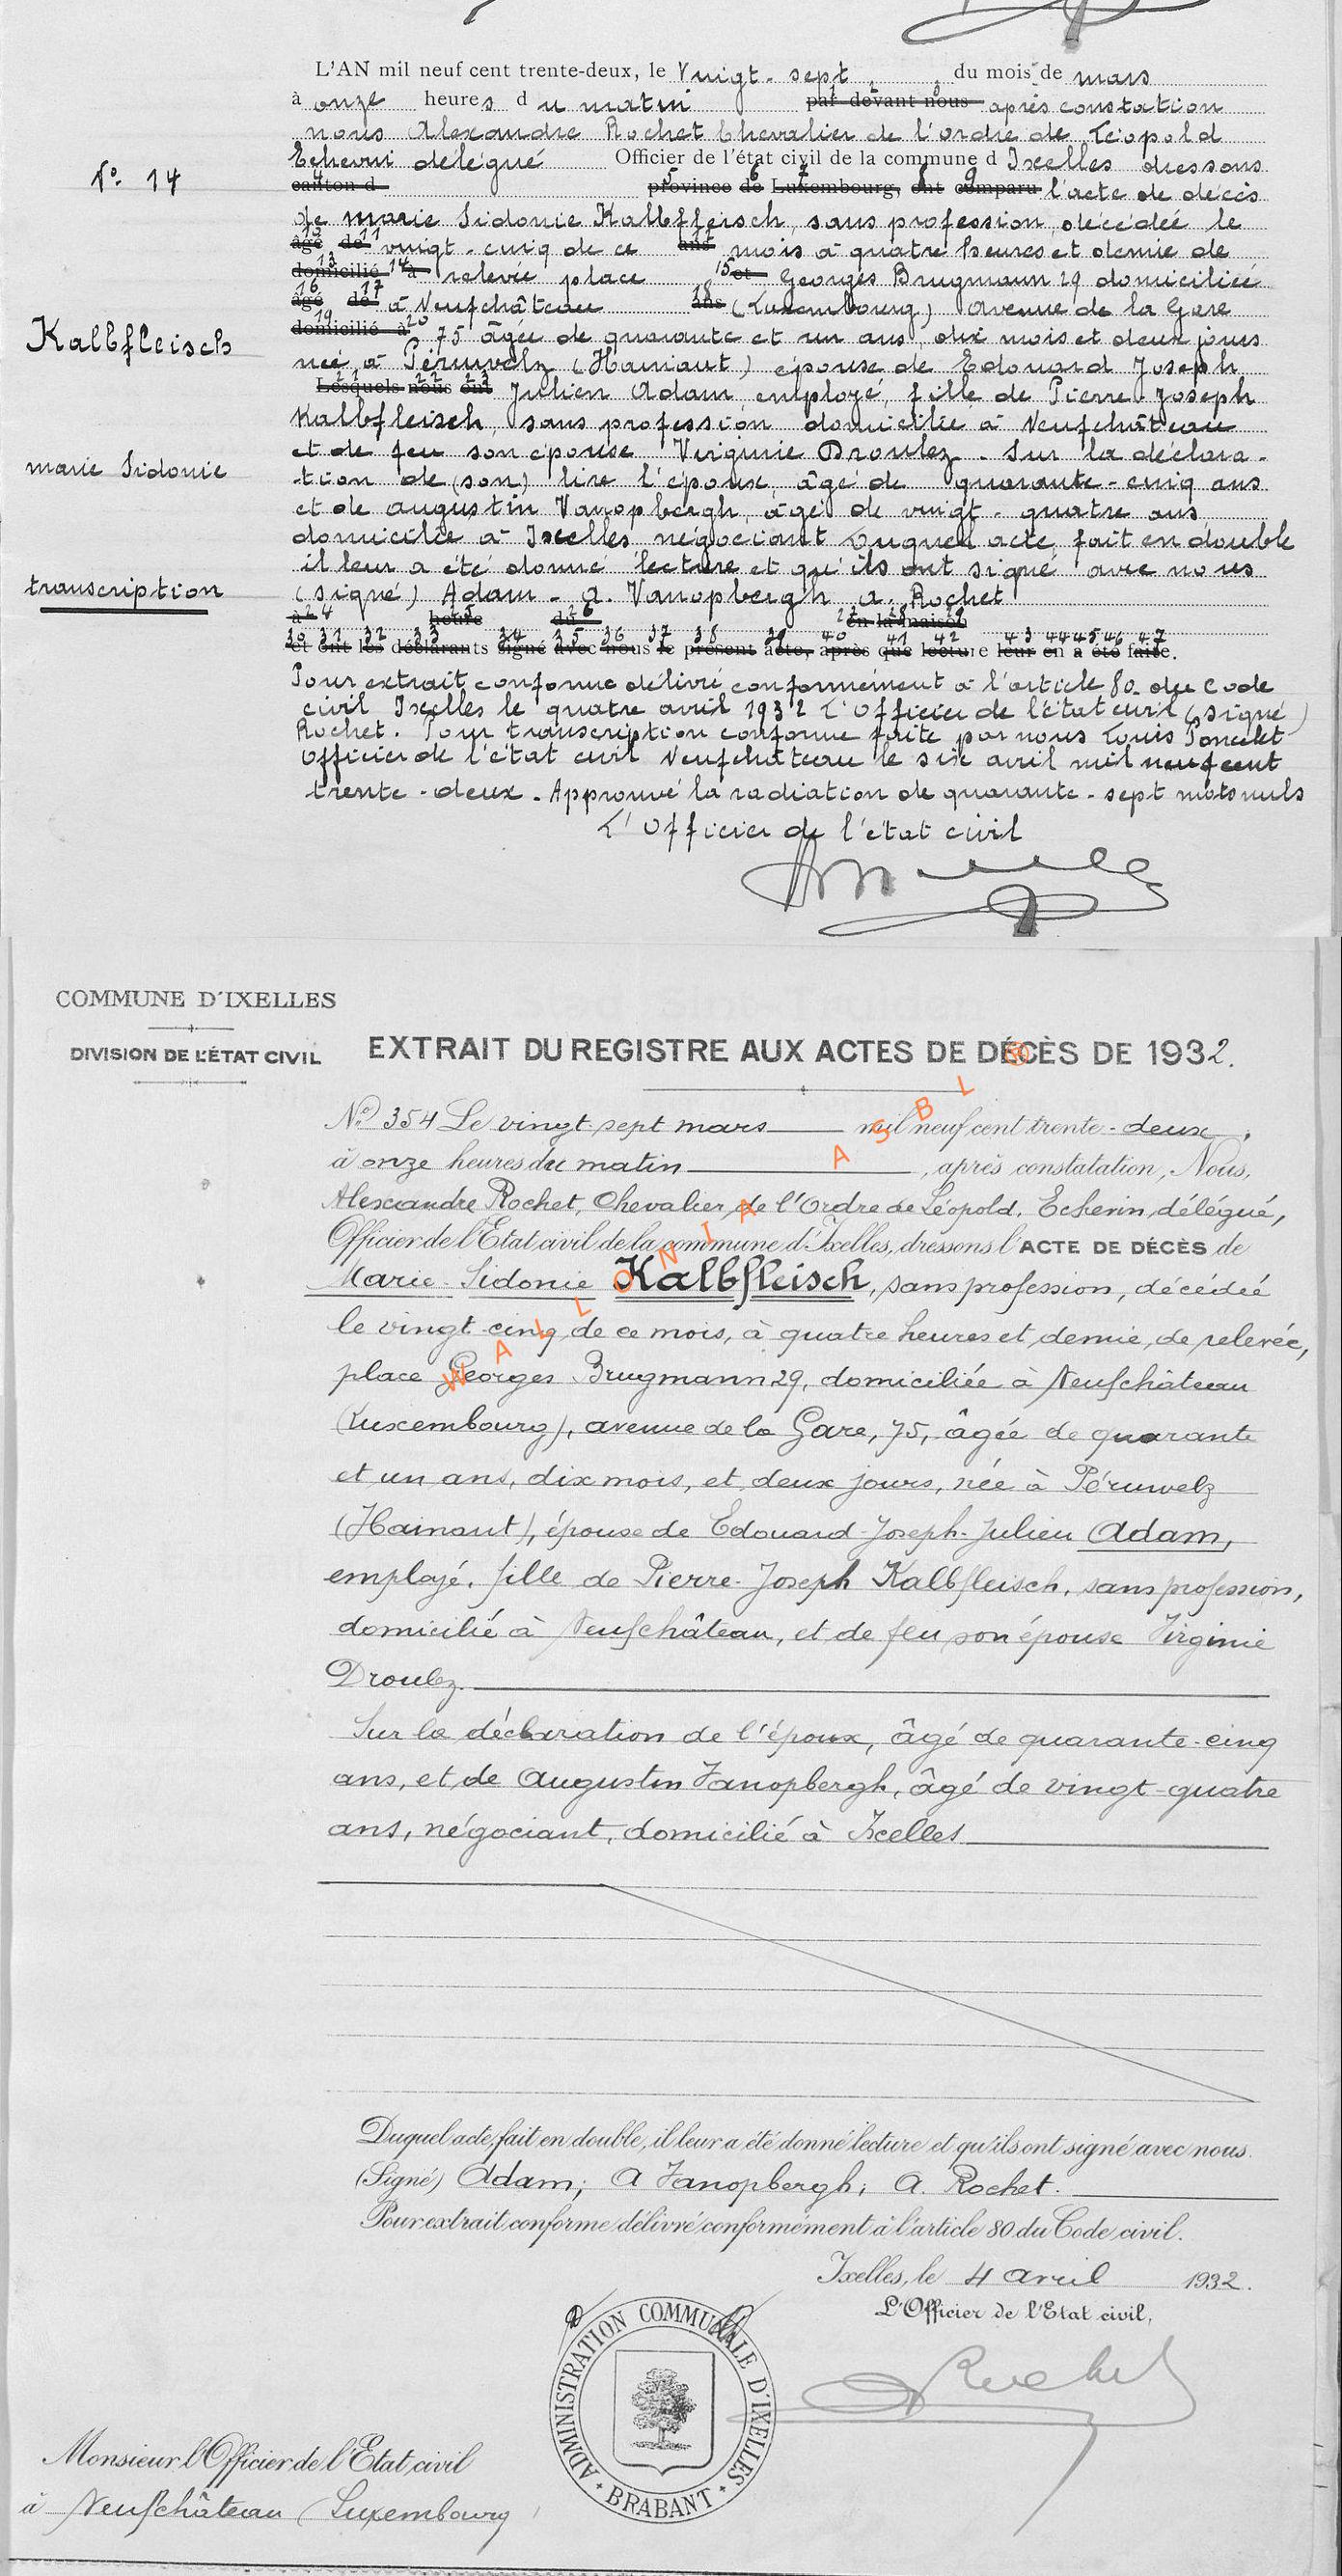 L'AN mil neuf cent trente-deux, le Vingt-sept du mois de mars
à onze heures du matin par devant nous après constation
nous Alexandre Rochet Chevalier de l'ordre de Léopold
N° 14
Echevin délégué Officier de l'état civil de la commune d Ixelles dressons
canton d province de Luxembourg, ont comparu l'acte de décès
de marie Sidonie Kalbfleisch, sans profession, décédée le
âgé de vingt-cinq de ce ans mois à quatre heures et demie de
domicilié à relevée place et Georges Brugmann 29 domiciliée
âgé de à Neufchâteau ans (Luxembourg) Avenue de la Gare
Kalbfleisch
domicilié à 75 âgée de quarante et un ans, dix mois et deux jours
née à Péruwelz (Hainaut) épouse de Edouard Joseph
Lesquels nous ont Julien Adam employé, fille de Pierre Joseph
Kalbfleisch, sans profession domicilié à Neufchâteau
et de feu son épouse Virginie Droulez - Sur la déclara-
marie Sidonie
-tion de (son) lire l'époux, âgé de quarante-cinq ans
et de augustin Vanopbergh, âgé de vingt-quatre ans
domicilié à Ixelles négociant Duquel acte, fait en double
il leur a été donné lecture et qu'ils ont signé avec nous
transcription
(signé) Adam - a. Vanopbergh a. Rochet
à heure du en la maison
et ont les déclarants signé avec nous le présent acte, après que lecture leur en a été faite.
Pour extrait conforme délivré conformément à l'article 80 du Code
civil Ixelles le quatre avril 1932 L'Officier de l'état civil (signé)
Rochet. Pour transcription conforme faite par nous Louis Poncelet
Officier de l'état civil Neufchâteau le six avril mil neuf cent
trente-deux. Approuvé la radiation de quarante-sept mots nuls
L'Officier de l'état civil
COMMUNE D'IXELLES
DIVISION DE L'ÉTAT CIVIL
EXTRAIT DU REGISTRE AUX ACTES DE DÉCÈS DE 1932.
N° 354 Le vingt-sept mars mil neuf cent trente-deux,
à onze heures du matin, après constatation, Nous,
Alexandre Rochet, Chevalier de l'Ordre de Léopold, Echevin délégué,
Officier de l'Etat civil de la commune d'Ixelles, dressons l'ACTE DE DÉCÈS de
Marie-Sidonie Kalbfleisch, sans profession, décédée
le vingt-cinq de ce mois, à quatre heures et demie, de relevée,
place Georges Brugmann 29, domiciliée à Neufchâteau
(Luxembourg), avenue de la Gare, 75, âgée de quarante
et un ans, dix mois, et deux jours, née à Péruwelz
(Hainaut), épouse de Edouard-Joseph-Julien Adam,
employé, fille de Pierre-Joseph Kalbfleisch, sans profession,
domicilié à Neufchâteau, et de feu son épouse Virginie
Droulez.
Sur la déclaration de l'époux, âgé de quarante-cinq
ans, et de Augustin Vanopbergh, âgé de vingt-quatre
ans, négociant, domicilié à Ixelles
WALLONIA ASBL ®
Duquel acte, fait en double, il leur a été donné lecture et qu'ils ont signé avec nous.
(Signé) Adam; A Vanopbergh; A. Rochet.
Pour extrait conforme délivré conformément à l'article 80 du Code civil.
Ixelles, le 4 avril 1932.
L'Officier de l'Etat civil,
Rochet
ADMINISTRATION COMMUNALE D'IXELLES
BRABANT
Monsieur l'Officier de l'Etat civil
à Neufchâteau (Luxembourg)